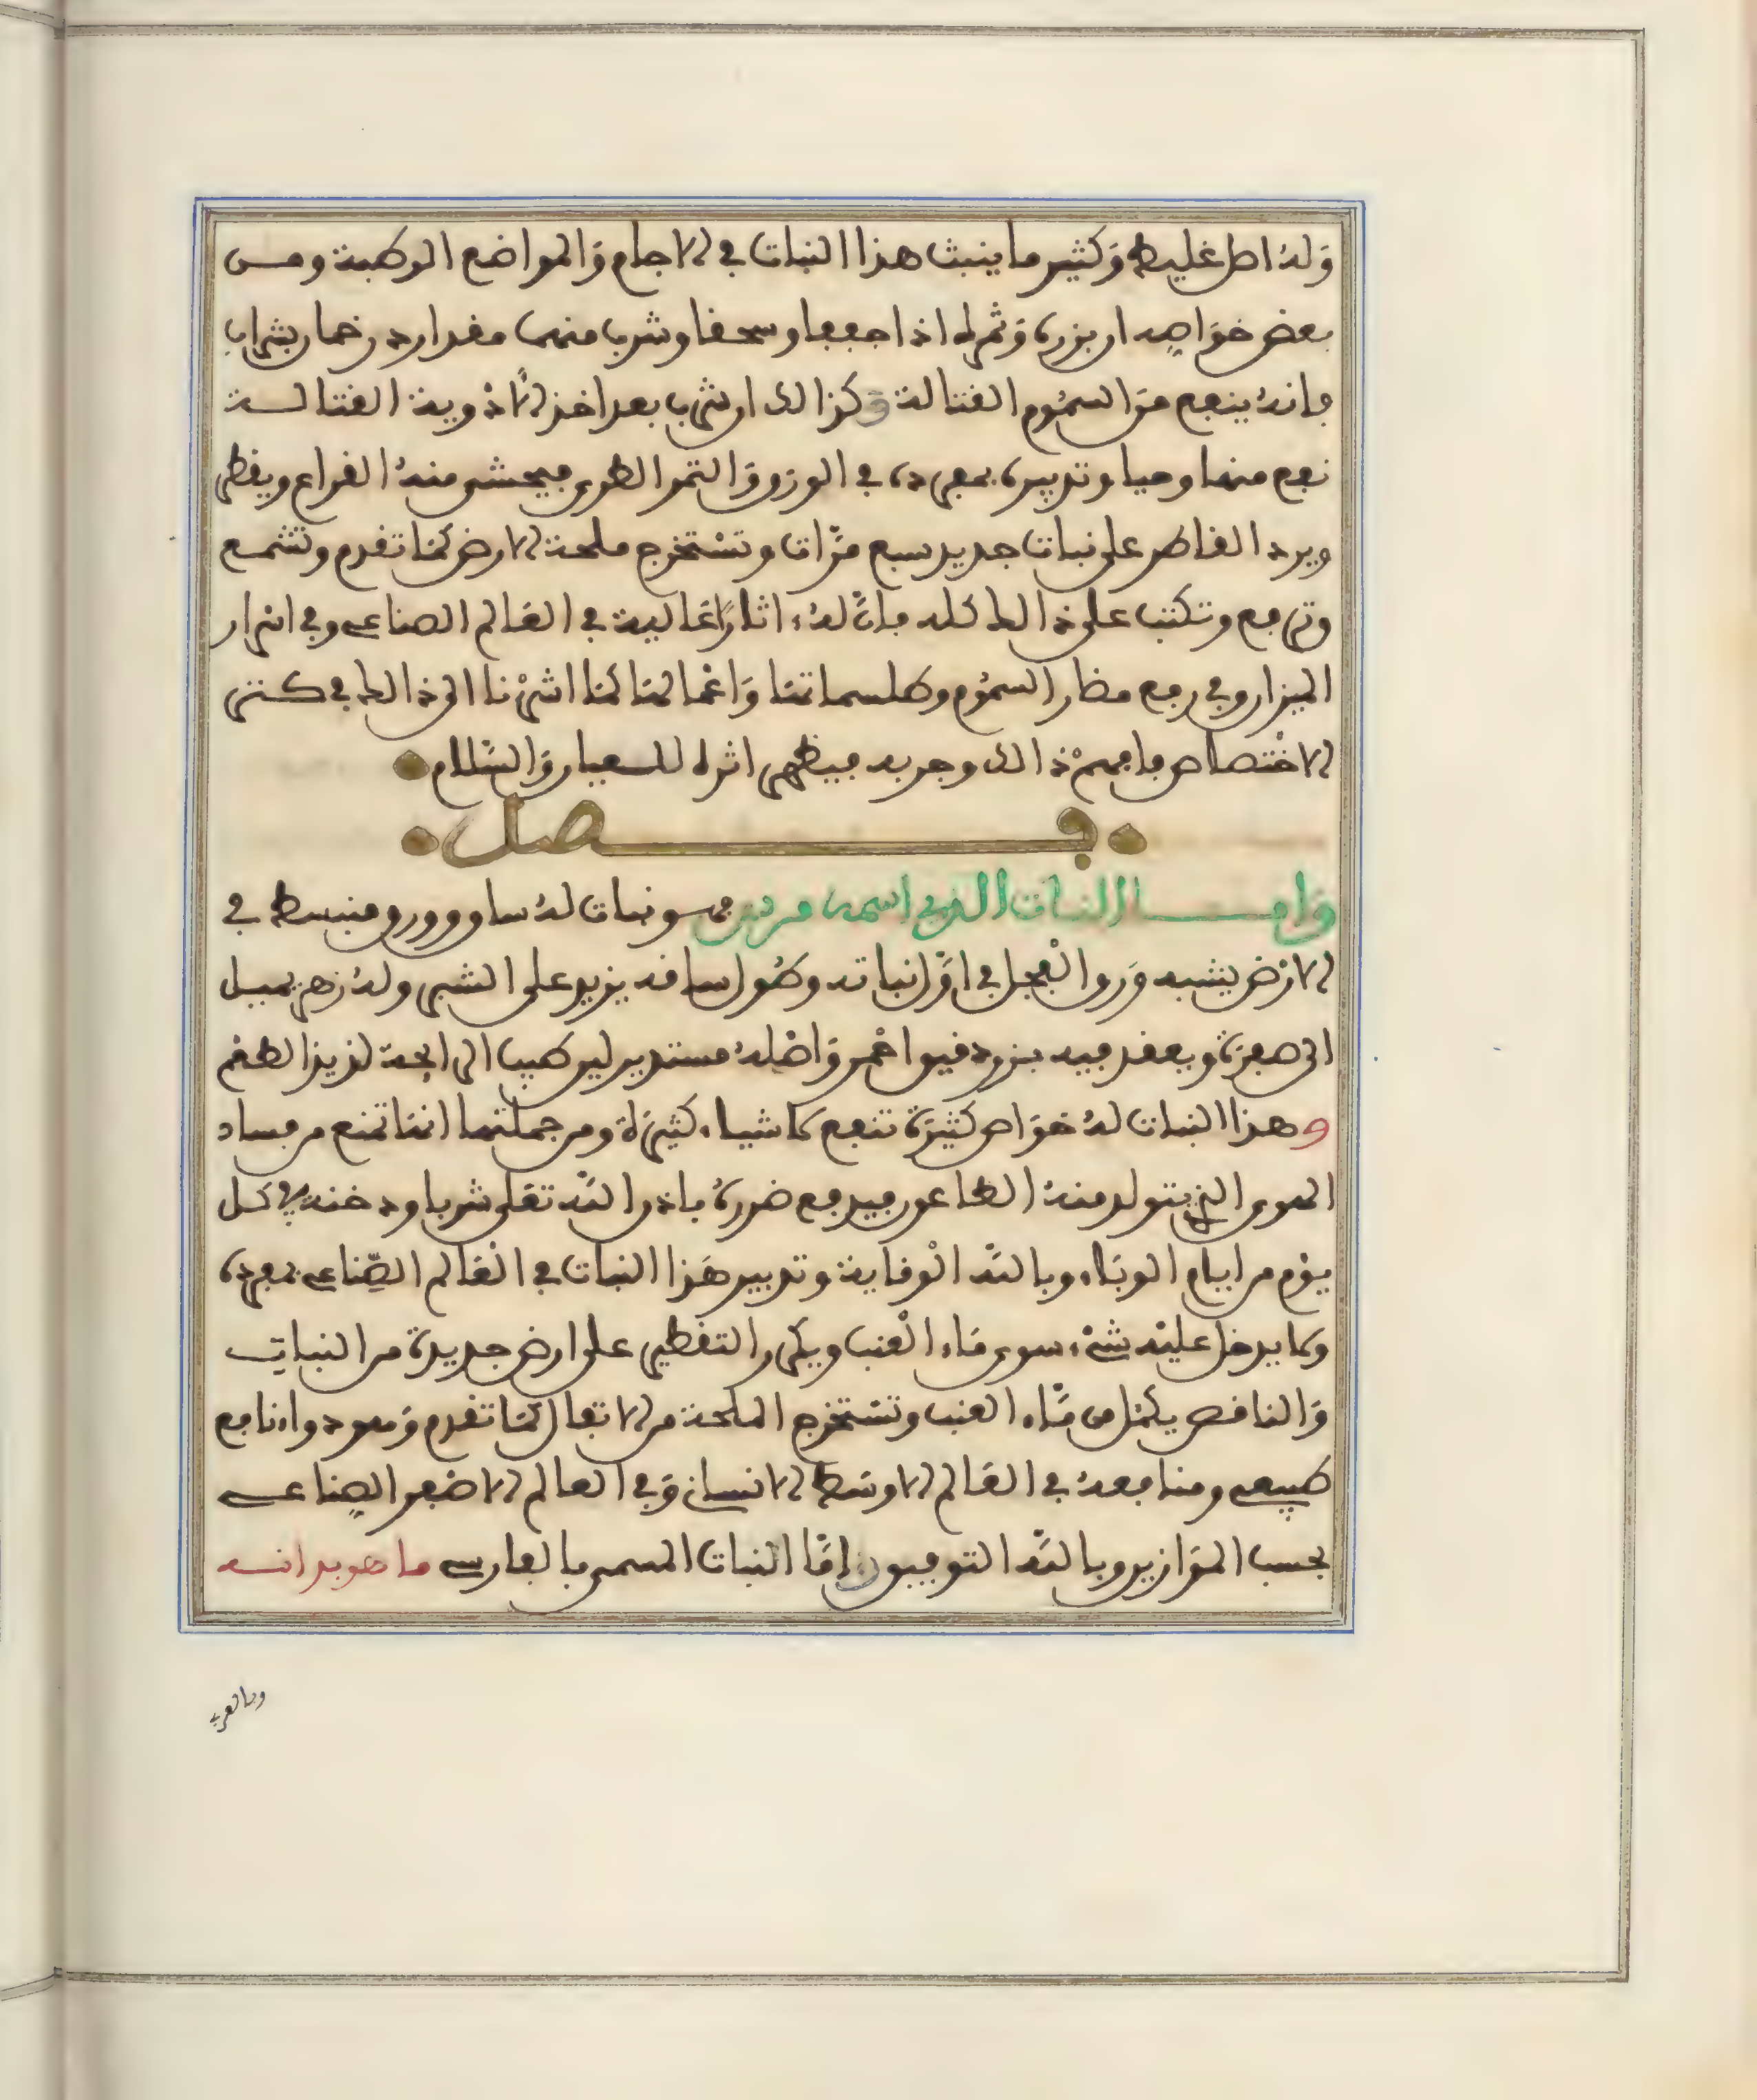 وَلهُ اصل غليظ وَكثير ما ينبت هذا النبات في الاجام وَالمواضع الرطبة ومن
بعض خوَاصه ان بزره وَثمره اذا جففا وسحقا وشرب منهما مقدار درخمان بشراب
فانهُ ينفع منَ السمُوم القتالة وَكذالك ان شرب بعد اخذ الأدْوية القتالـة
نفع منها وحيا وتدبيره بمفرده في الوزن وَالتمر الطري فيحشى منهُ القراع ويقطر
ويرد القاطر على نبات جديد سبع مرّات وتسْتخرج ملحة الارض كمَا تقدم وتشمع
وترفع وتكتب على ذالك كله فانّ لهُ اثارًا عَالية في العَالم الصناعي وفي اسْرار
الميزان وفي رفع مضار السمُوم وطلسماتنَا وَاعْمالنَا كمَا اشرْنا الى ذالك في كتبي
الاخْتصاص فافهمْ ذالك وجربه فيظهر اثره للعيان وَالسّلام
فصل
وَامـا النبات الذي اسمه مرديں فهو نبات لهُ ساق وورق منبسط في
الارْض يشبه وَرق الفجل في اوَّل نباته وطُول ساقه يزيد على الشبر ولهُ زهر يميل
الى صفرَة ويعقد فيه بزر دقيق احْمر وَاصْلهُ مستدير لين طيب الرايحة لذيذ الطعْم
وهذا النبات لهُ خوَاص كثيرَة تنفع لاشياء كثيرَة ومن جملتها انهَا تمنع من فساد
الهوى الذي يتولد منهُ الطاعون فيدفع ضررهُ باذن اللّه تعَلى شربا ودخنة في كل
يوْم من ايام الوبَاء وباللّه الْوقاية وتدبير هَذا النبات في الْعَالم الصّناعي بمفرده
ولا يدخل عليْه شيْء سوى مَاء الْعنب ويكرر التقطير على ارض جديدة من النبات
وَالناقص يكمل من مَّاء العنب وتسْتخرج الملحة من الاتفال كمَا تقدم وَهو دواء نافع
طبيعي ومنافعهُ في العَالم الاوسَط الانسان وَفي العالم الاصْغر الصناعي
بحسب الموَازين وباللّه التوفيق وَامَّا النبات المسمى بالفارسي ماهوبدانـه
وبالعربـ